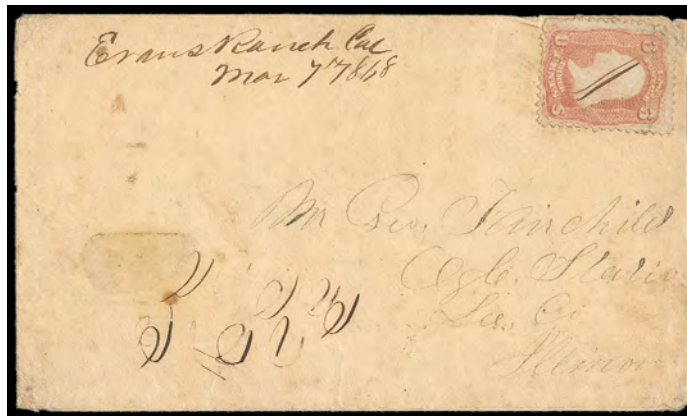 Evans Ranch Cal
Mar 7th 1868
Mr Geo. Fairchild
Ogle Station
Lee Co
Illinois